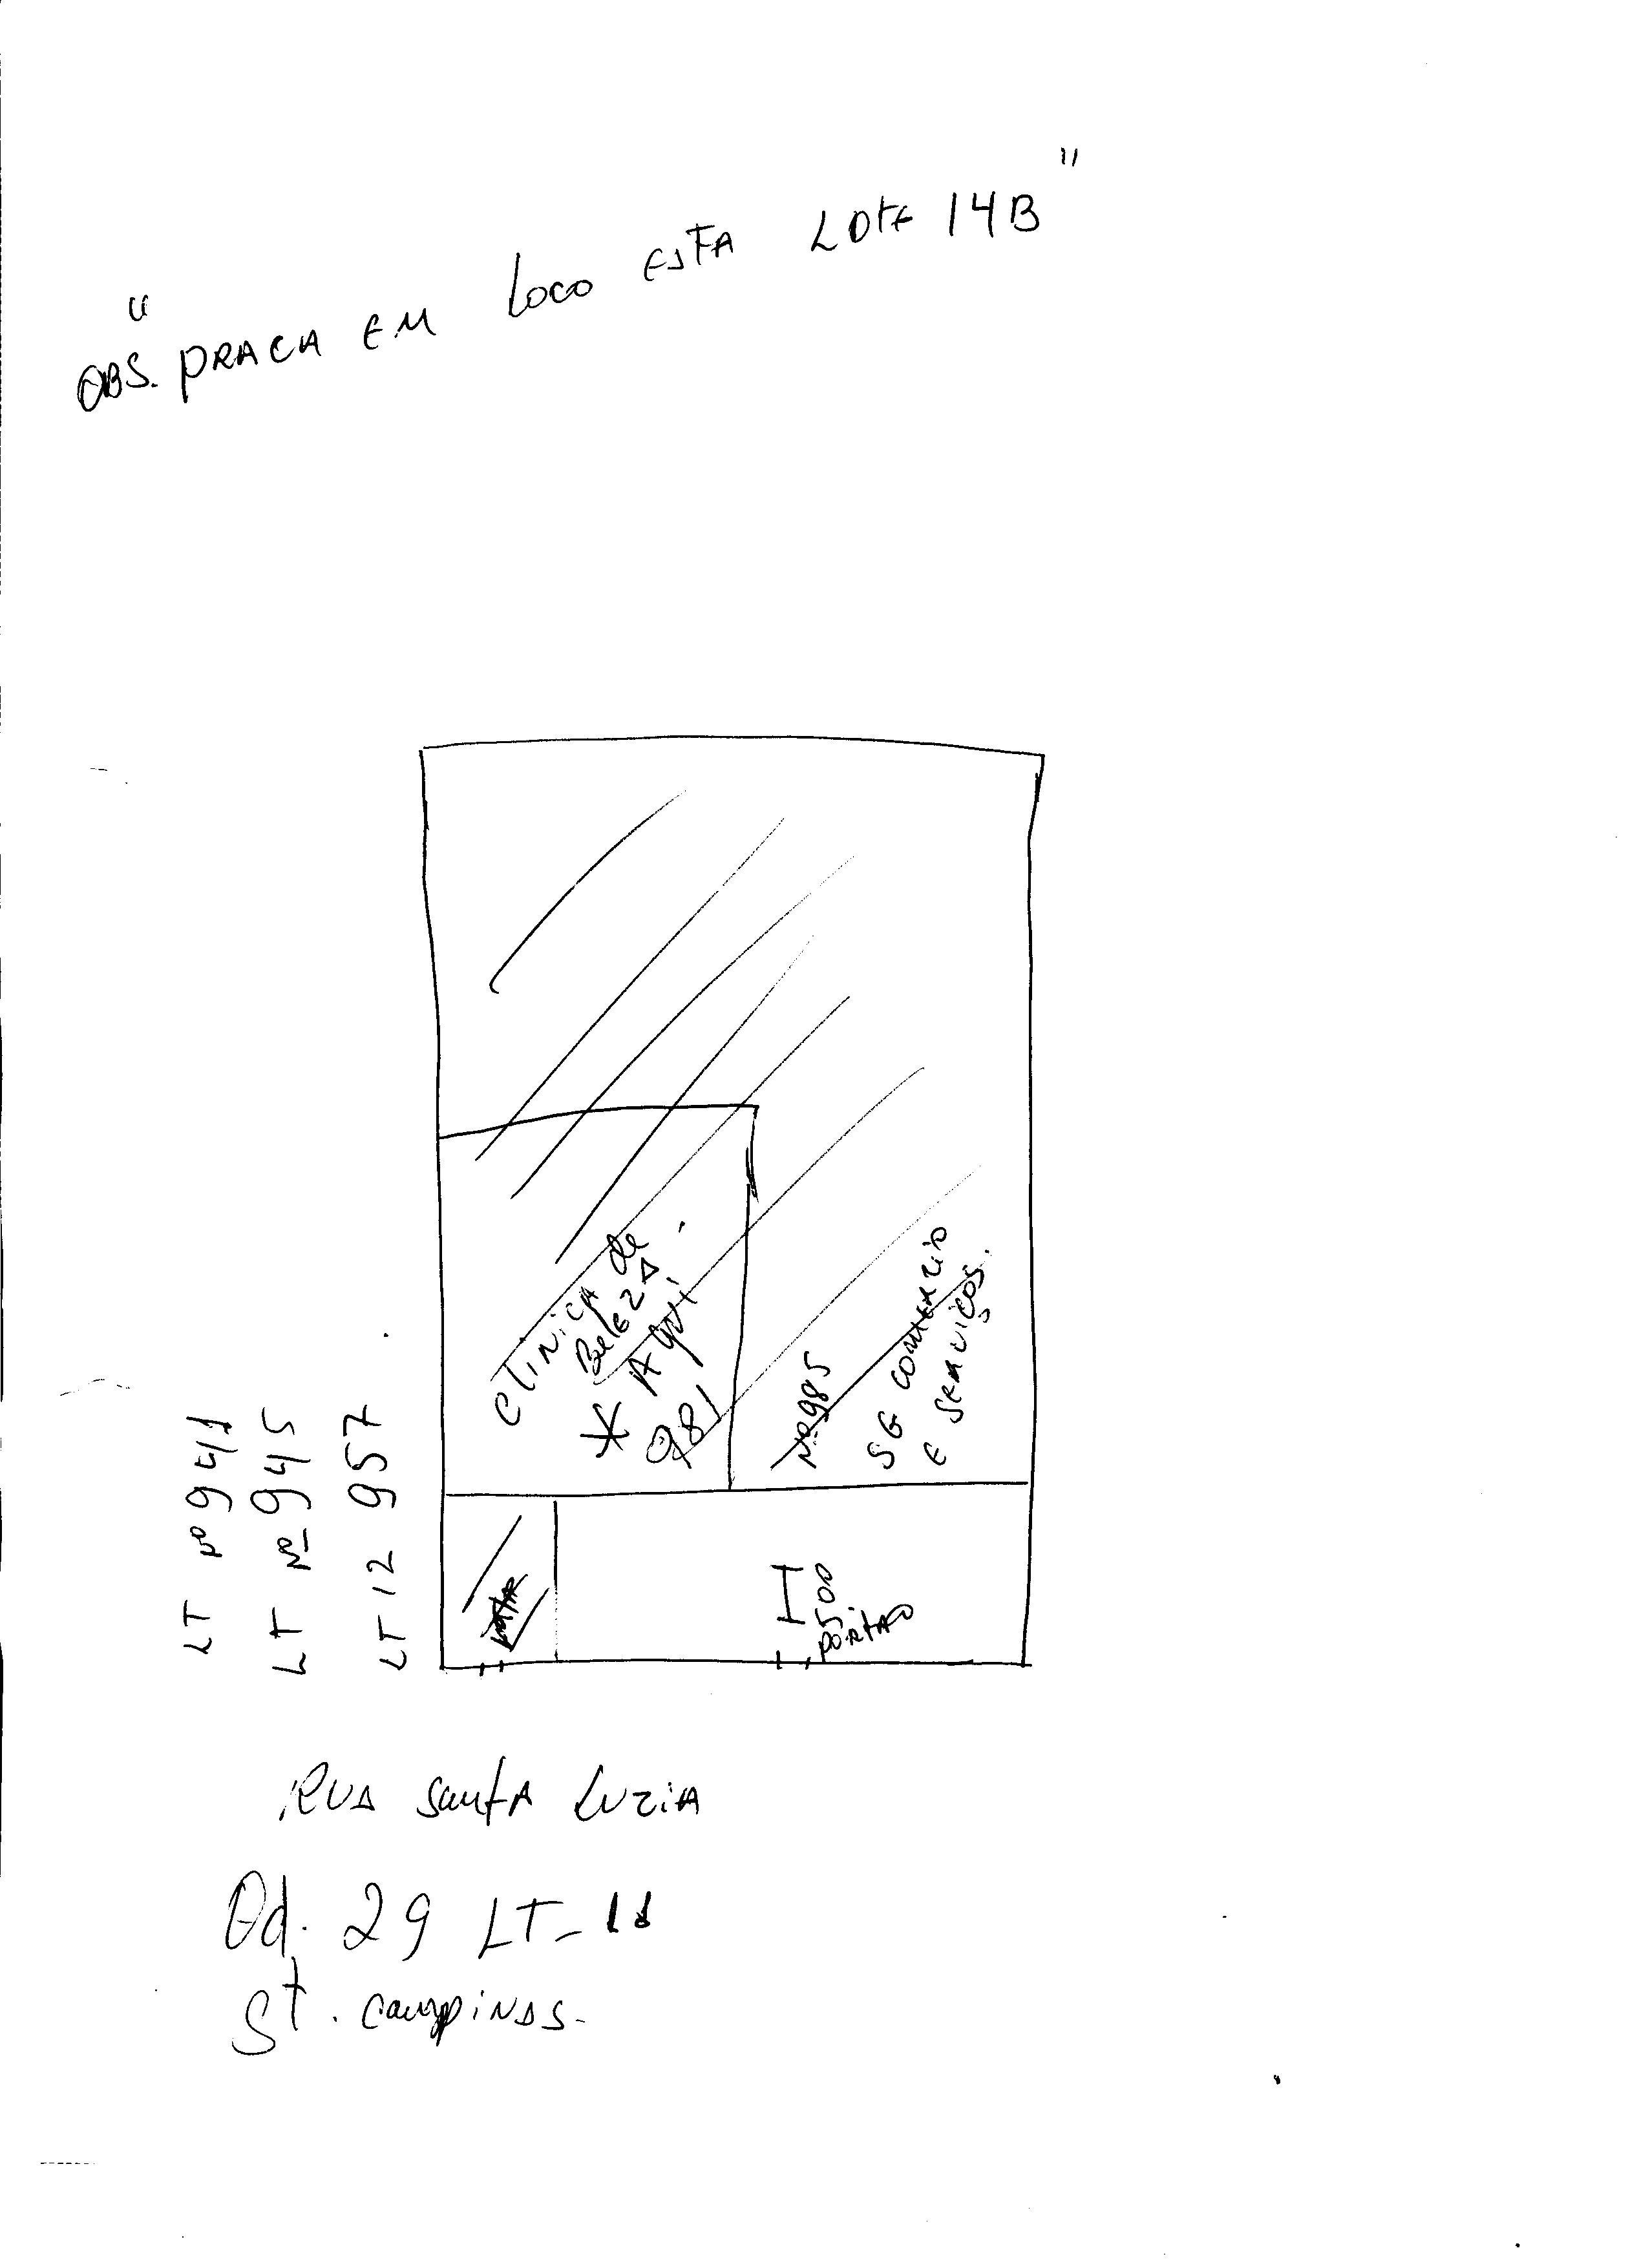 "OBS. PRACA EM LOCO ESTA LOTE 14B"
CLINICA de
BELEZA.
* AQUI
981
Nº 985
SG COMERZIO
E SERVIÇOS.
LT Nº 941
LT Nº 945
LT 12 957
500
PORTAO
RUA SANTA LUZIA
Qd. 29 LT- 11
St. CAMPINAS.